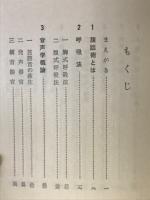 もくじ
まえがき
1 腹話術とは
2 呼吸法
一 胸式呼吸法
二 腹式呼吸法
3 音声学概論
一 言語音の発生
二 発声器官
三 調音器官